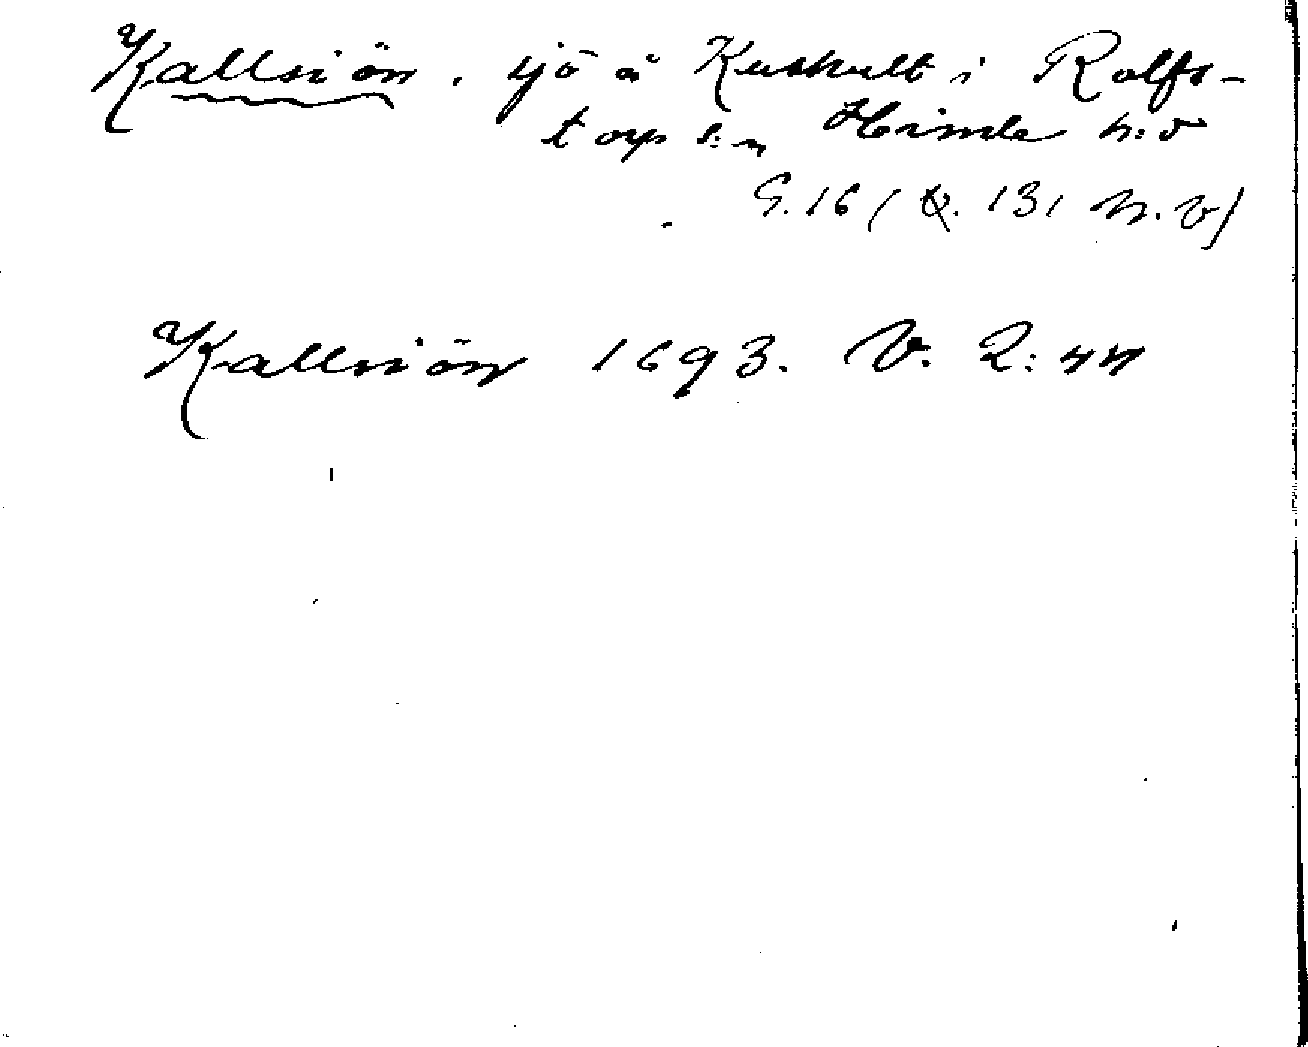 Kallsiön, sjö å Kuskult i Rolfs-
torp s:n Himle h:d
G. 16 ( Q. 131 N.V)
Kallsiön 1693. V. 2: 44